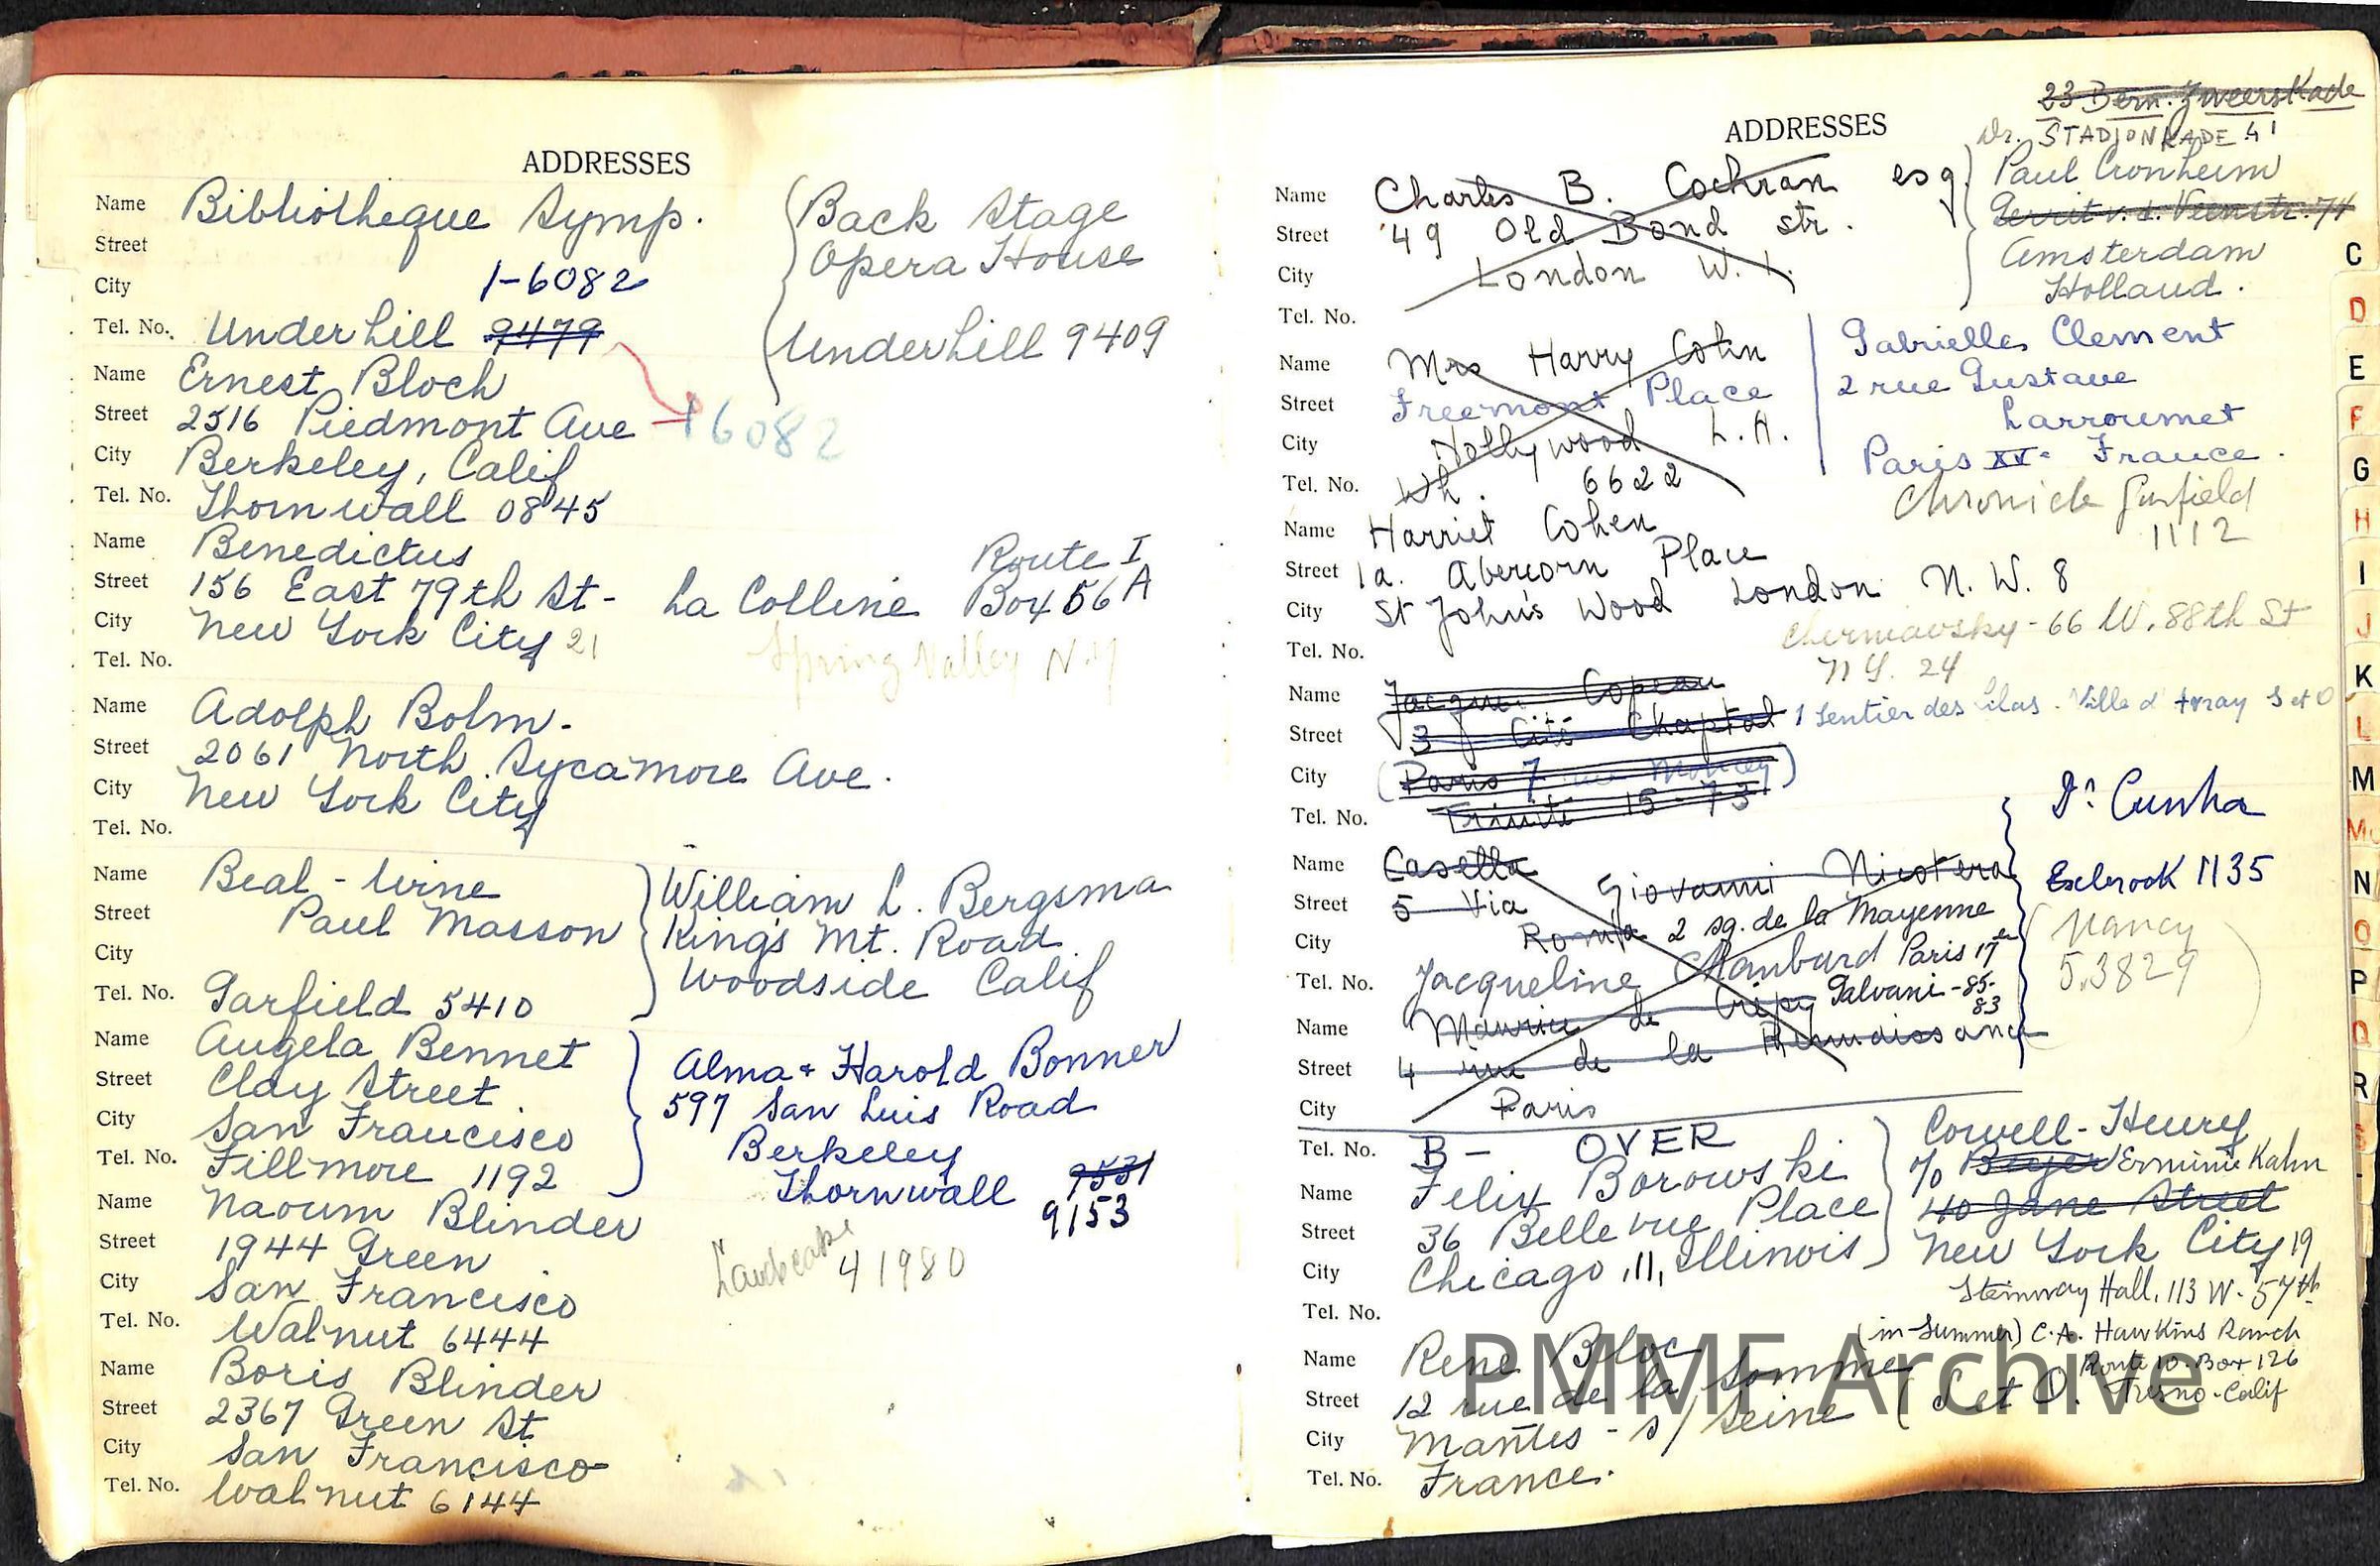 ADDRESSES
Name Bibliothèque Symp.
Street
City 1-6082
Tel. No. Underhill 9479
Back Stage
Opera House
Underhill 9409
Name Ernest Bloch
Street 2516 Piedmont Ave 16082
City Berkeley, Calif
Tel. No. Thornwall 0845
Name Benedictus
Street 156 East 79th St- La Colline
City New York City 21
Tel. No.
Route I
Box 56 A
Spring Valley N.Y
Name Adolph Bolm-
Street 2061 North Sycamore Ave.
City New York City
Tel. No.
Name Beal - Wine
Street Paul Masson
City
Tel. No. Garfield 5410
William L. Bergsma
King's Mt. Road
Woodside Calif
Name Angela Bennet
Street Clay Street
City San Francisco
Tel. No. Fillmore 1192
Alma + Harold Bonner
597 San Luis Road
Berkeley
Thornwall 9531
9153
Name Naoum Blinder
Street 1944 Green
City San Francisco
Tel. No. Walnut 6444
41980
Name Boris Blinder
Street 2367 Green St
City San Francisco
Tel. No. Walnut 6144
ADDRESSES
23 Bern. Zweerskade
Dr. STADIONKADE 41
Paul Cronheim
Gerrit v. d. Veenstr. 74
Amsterdam
Holland.
Name Charles B. Cochran esq
Street 49 Old Bond str.
City London W. 1.
Tel. No.
Name Mrs Harry Cohn
Street Freemont Place
City Hollywood L.A.
Tel. No. Wh. 6622
Gabrielle Clement
2 rue Gustave
Larroumet
Paris XV. France.
Chronicle Garfield
1112
Name Harriet Cohen
Street 1a. Abercorn Place
City St John's Wood London N. W. 8
Tel. No.
Cherniavsky - 66 W. 88th St
N Y. 24
Name Jacques Copeau
Street 3 Cité Chaptal 1 Sentier des Lilas. Ville d'Avray S et O
City (Paris 7 rue Moncey)
Tel. No. Trinité 15-73
Dr Cunha
Exbrook 1135
Nancy
5.3829
Name Casella
Street 5 Via Giovanni Nicotera
City Roma 2 sq. de la Mayenne
Tel. No. Jacqueline Chambard Paris 17
Galvani - 85-
83
Name Maurice de Crépy
Street 4 rue de la Renaissance
City Paris
Tel. No. B - OVER
Name Felix Borowski
Street 36 Bellevue Place
City Chicago, 11, Illinois
Tel. No.
Cowell - Henry
% Beyer Erminie Kahn
40 Jane Street
New York City 19
Steinway Hall, 113 W. 57th
(in Summer) C.A. Hawkins Ranch
Route 10. Box 126
Fresno - Calif
Name René Bloc
Street 12 rue de la Somme
City Mantes - s/ Seine (S et O.
Tel. No. France.
C
D
E
F
G
H
I
J
K
L
M
Mc
N
O
P
Q
R
S
PMMF Archive